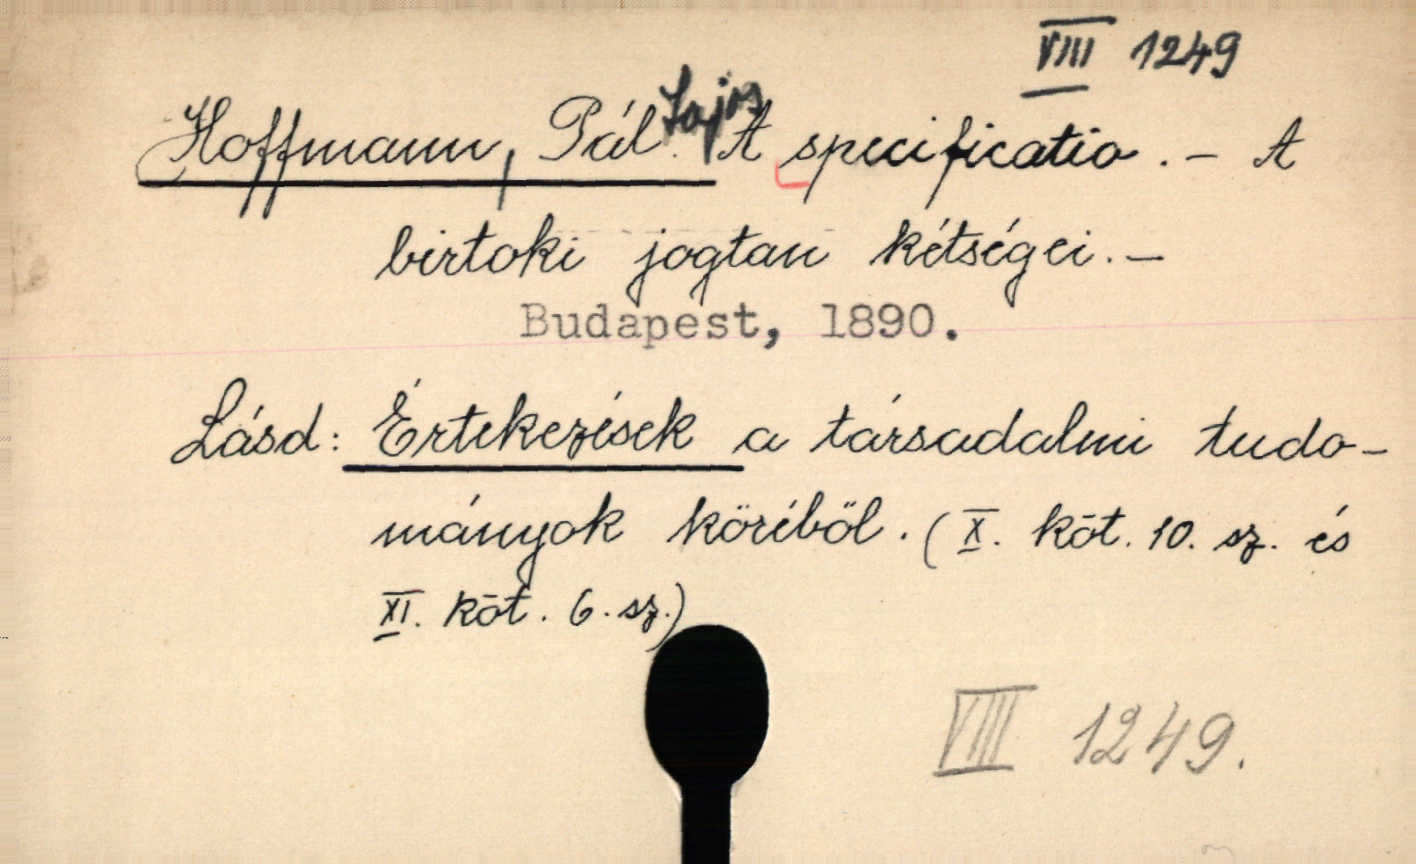 VIII 1249
Hoffmann, Pál Lajos. A specificatio. – A
birtoki jogtan kétségei. –
Budapest, 1890.
Lásd: Értekezések a társadalmi tudo-
mányok köréből. (X. köt. 10. sz. és
XI. köt. 6. sz.)
VIII 1249.